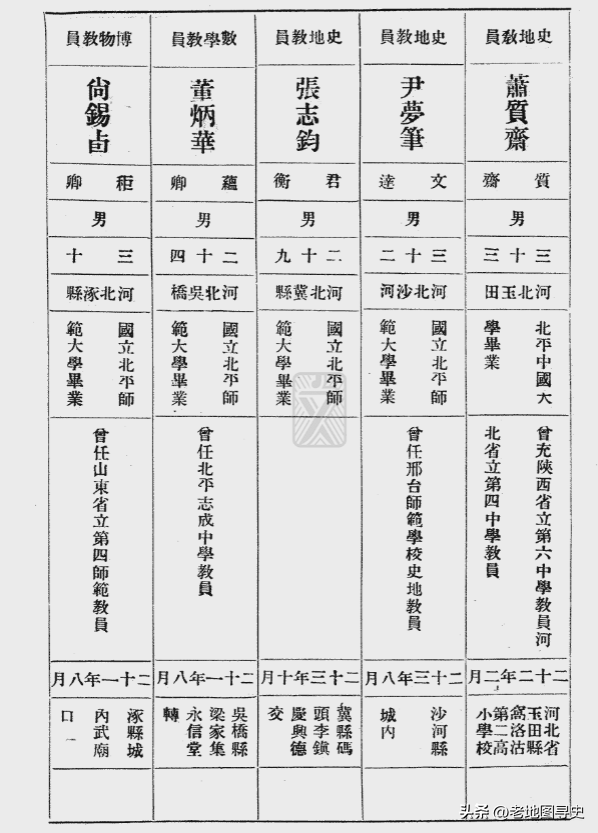 史地教員
蕭質齋
質齋
男
三十三
河北玉田
北平中國大
學畢業
曾充陝西省立第六中學教員河
北省立第四中學教員
二十二年二月
河北省
玉田縣
窩洛沽
第二高
小學校
史地教員
尹夢筆
文達
男
三十二
河北沙河
國立北平師
範大學畢業
曾任邢台師範學校史地教員
二十三年八月
沙河縣
城內
史地教員
張志鈞
君衡
男
二十九
河北冀縣
國立北平師
範大學畢業
二十三年十月
冀縣碼
頭李鎮
慶興德
交
數學教員
董炳華
蘊卿
男
二十四
河北吳橋
國立北平師
範大學畢業
曾任北平志成中學教員
二十一年八月
吳橋縣
梁家集
永信堂
轉
博物教員
尙錫卣
秬卿
男
三十
河北涿縣
國立北平師
範大學畢業
曾任山東省立第四師範教員
二十一年八月
涿縣城
內武廟
口
头条 @老地图寻史